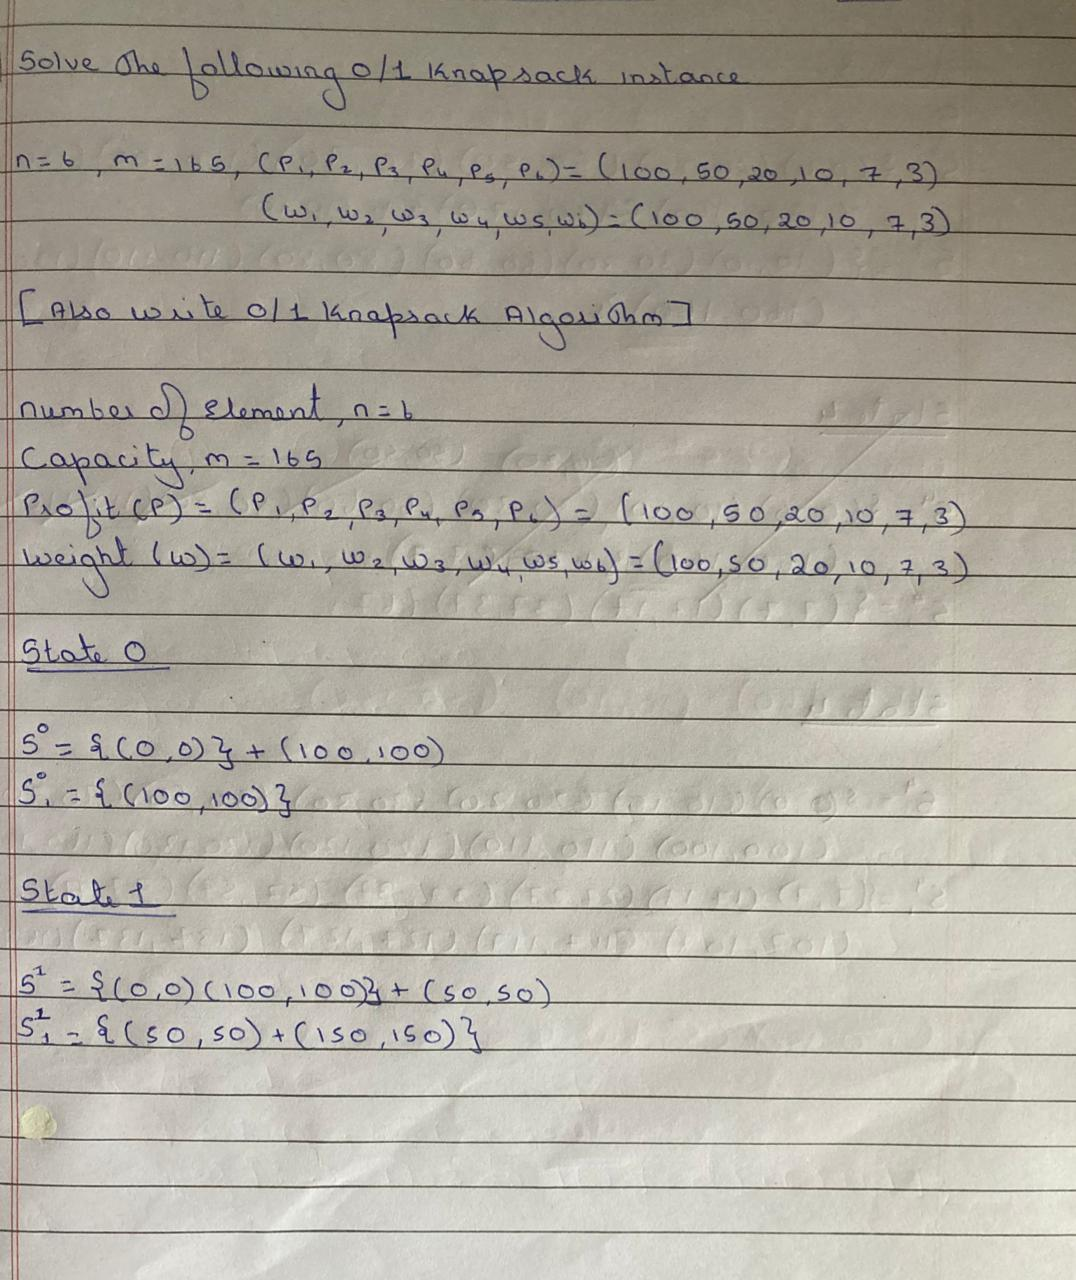 Solve the following 0/1 Knapsack instance
n=6, m=165, (P₁, P₂, P₃, P₄, P₅, P₆) = (100, 50, 20, 10, 7, 3)
(w₁, w₂, w₃, w₄, w₅, w₆) = (100, 50, 20, 10, 7, 3)
[Also write 0/1 Knapsack Algorithm]
number of element, n=6
Capacity, m = 165
Profit (P) = (P₁, P₂, P₃, P₄, P₅, P₆) = (100, 50, 20, 10, 7, 3)
weight (w) = (w₁, w₂, w₃, w₄, w₅, w₆) = (100, 50, 20, 10, 7, 3)
State 0
S⁰ = {(0,0)} + (100,100)
S⁰₁ = {(100,100)}
State 1
S¹ = {(0,0)(100,100)} + (50,50)
S¹₁ = {(50,50) + (150,150)}